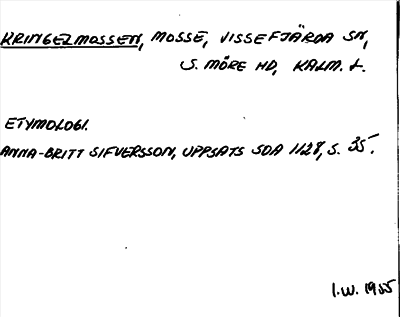 KRINGELMOSSEN, MOSSE, VISSEFJÄRDA SN,
S. MÖRE HD, KALM. L.
ETYMOLOGI.
ANNA-BRITT SIFVERSSON, UPPSATS SOA 1128, S. 35.
I.W. 1955